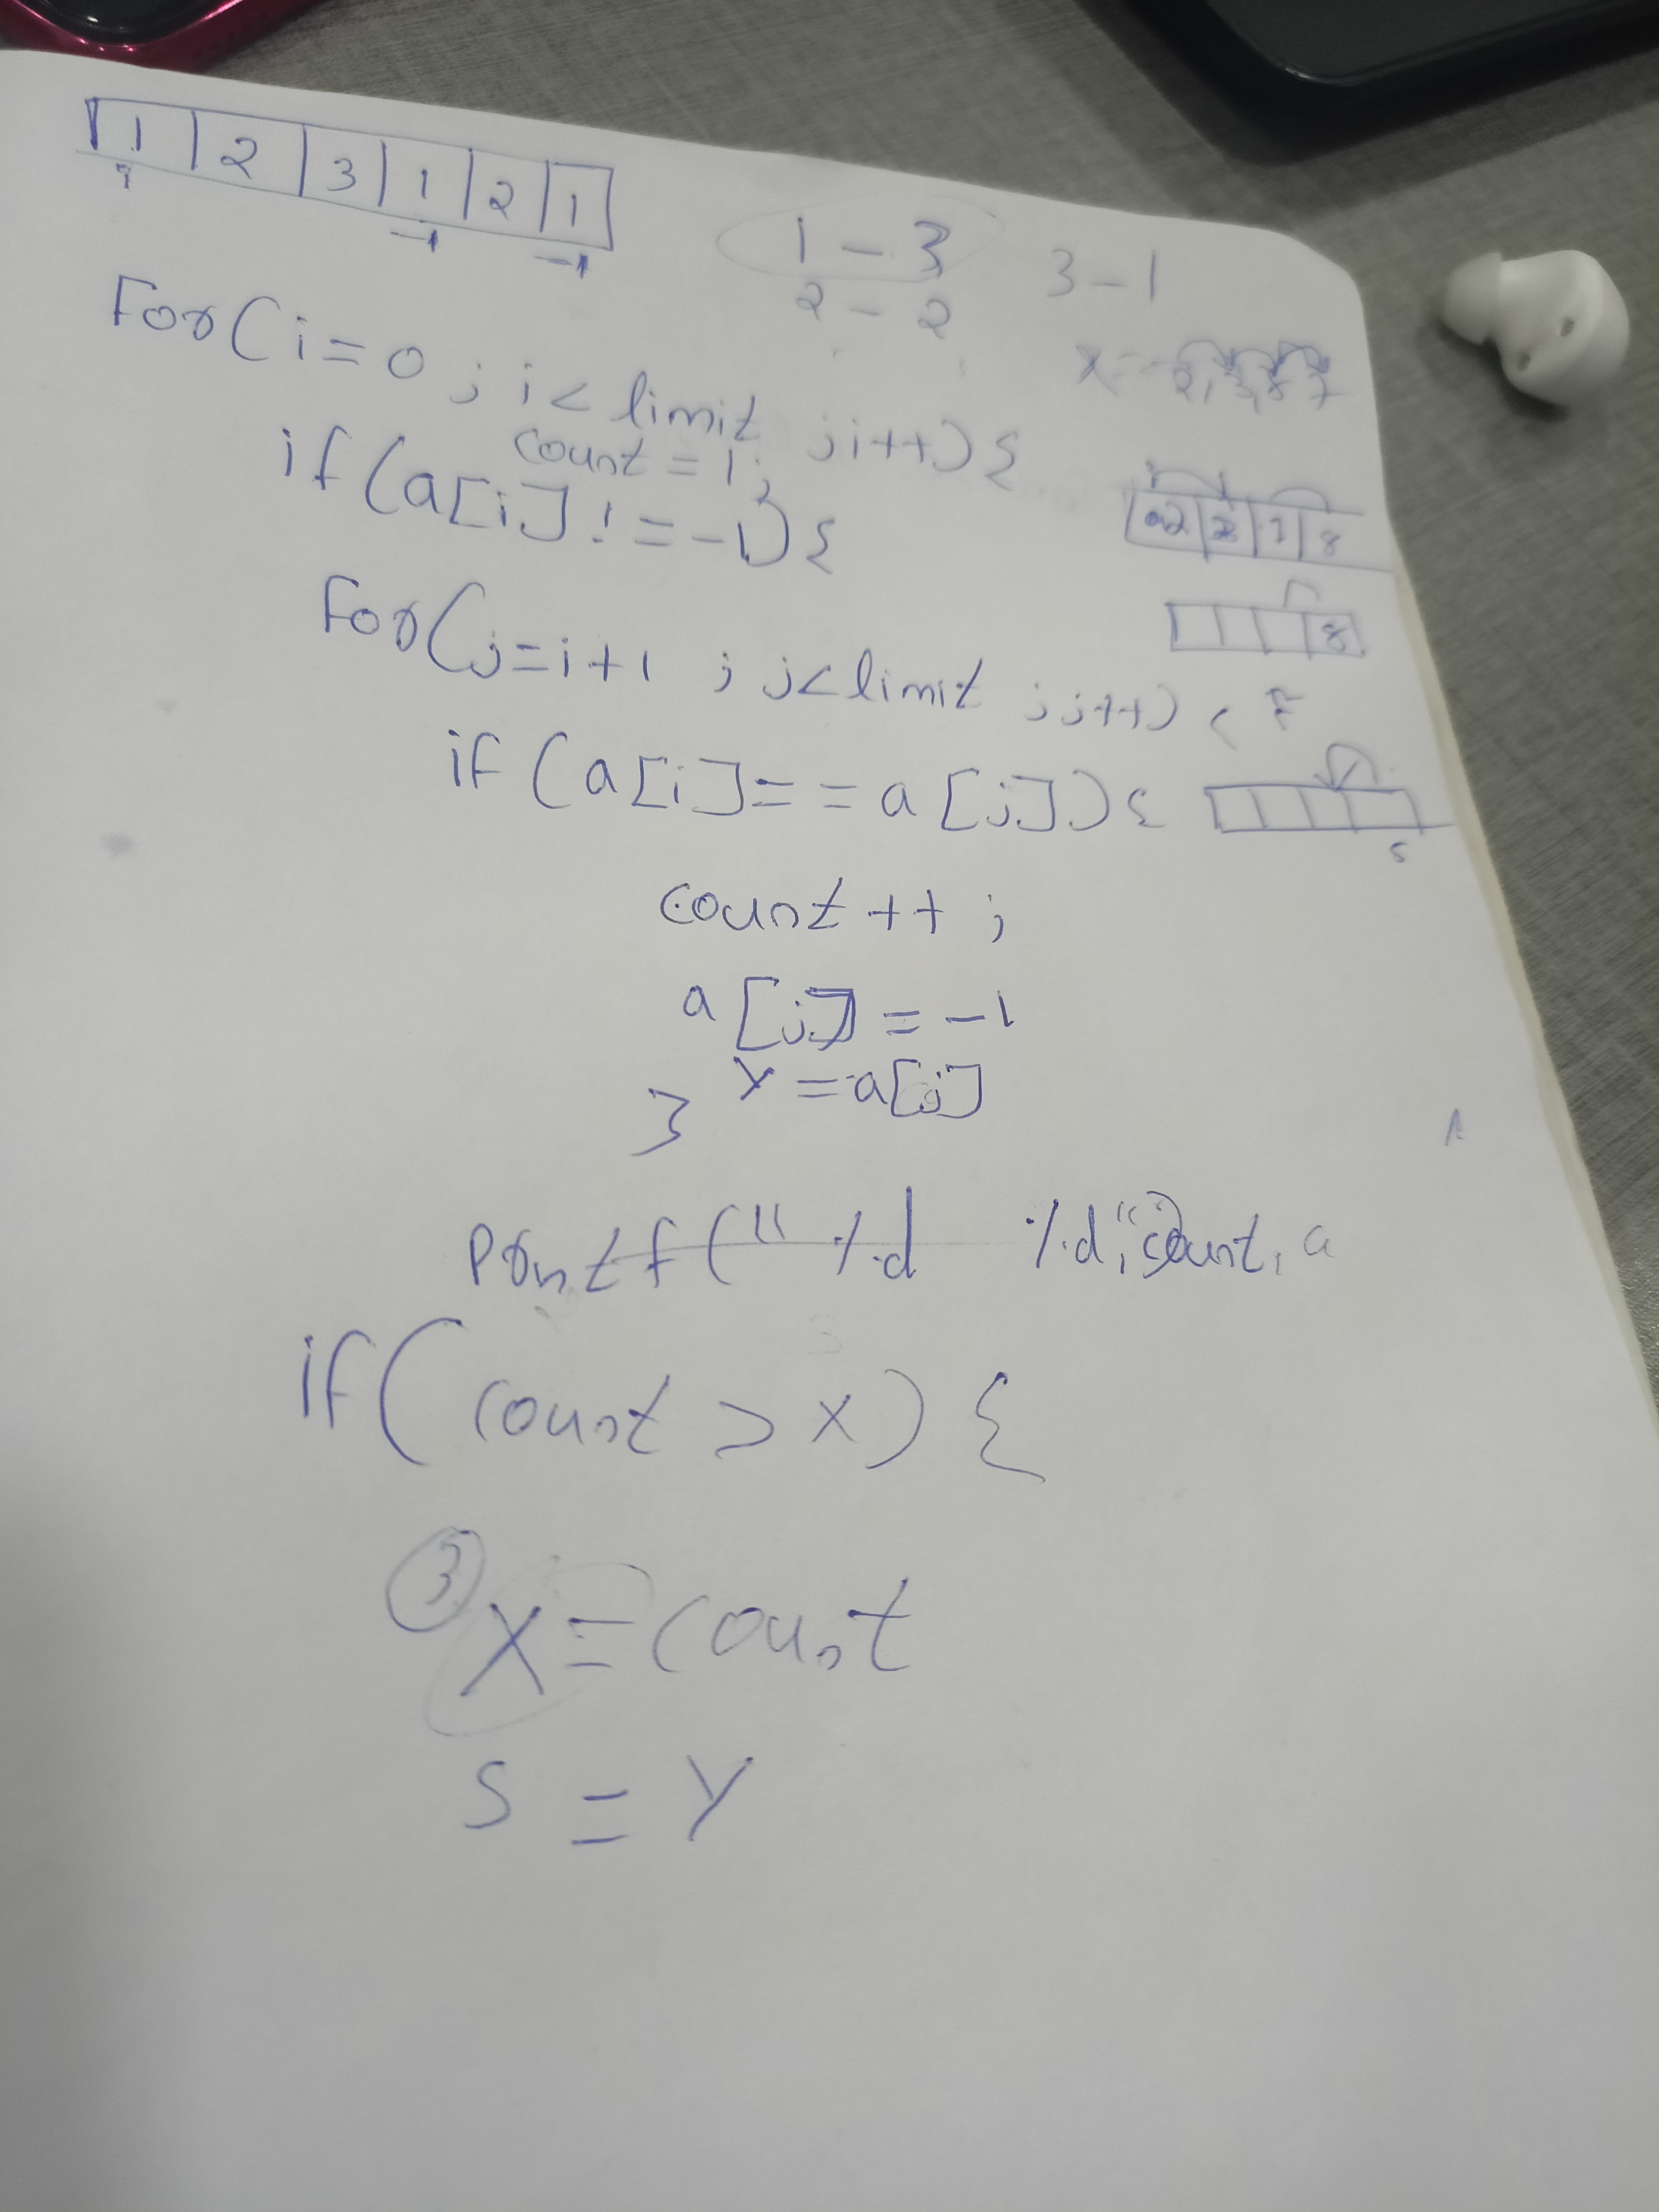 1 2 3 1 2 1
-1 -1
1 - 3
2 - 2
3 - 1
For(i=0 ; i< limit ; i++) {
count = 1;
if (a[i] != -1) {
8
For(j=i+1 ; j<limit ; j++) {
if (a[i] == a[j]) {
count ++ ;
a[j] = -1
Y = a[j]
}
Printf (" %d %d", count, a
if ( count > x ) {
3
X = count
S = Y